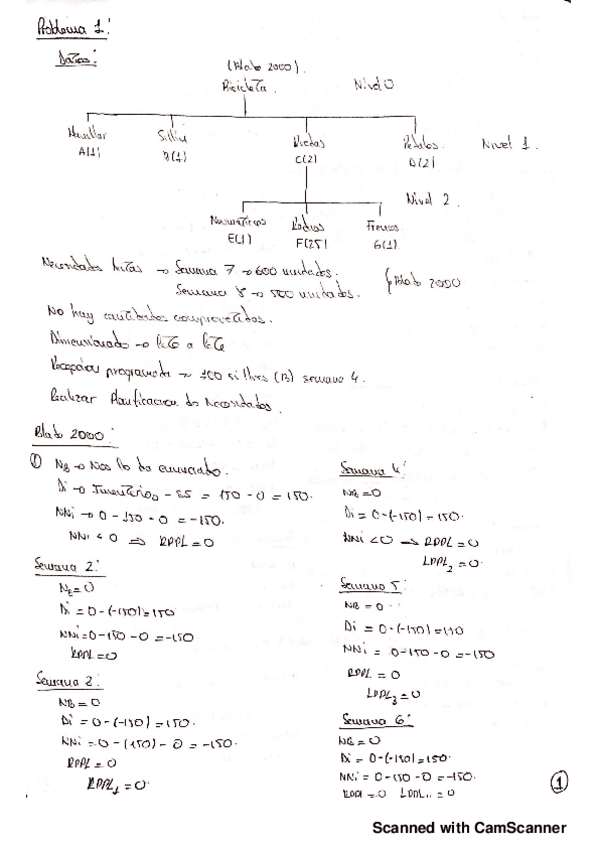 Problema 1:
Datos:
(Blab 2000).
Bicicleta. Nivel 0
Manillar Sillín Ruedas Pedales. Nivel 1.
A(1) B(1) C(2) D(2)
Nivel 2.
Neumáticos Radios Frenos
E(1) F(25) G(1)
Necesidades brutas → Semana 7 → 600 unidades.
Semana 8 → 500 unidades. Blab 2000
No hay cantidades comprometidas.
Dimensionado → lote a lote
Recepción programada → 100 sillines (B) semana 4.
Realizar Planificación de Necesidades.
Blab 2000:
① NB → Nos lo da enunciado.
Di → Inventario - SS = 150 - 0 = 150.
NNi → 0 - 150 - 0 = -150.
NNi < 0 ⇒ RPPL = 0
Semana 2:
NB = 0
Di = 0 - (-150) = 150
NNi = 0 - 150 - 0 = -150
RPPL = 0
Semana 2:
NB = 0
Di = 0 - (-150) = 150.
NNi = 0 - (150) - 0 = -150.
RPPL = 0
LPPL₁ = 0.
Semana 4:
NB = 0
Di = 0 - (-150) = 150.
NNi < 0 → RPPL = 0
LPPL₂ = 0.
Semana 5:
NB = 0
Di = 0 - (-150) = 150
NNi = 0 - 150 - 0 = -150
RPPL = 0
LPPL₃ = 0
Semana 6:
NB = 0
Di = 0 - (-150) = 150.
NNi = 0 - 150 - 0 = -150.
RPPL = 0 LPPL₄ = 0
①
Scanned with CamScanner